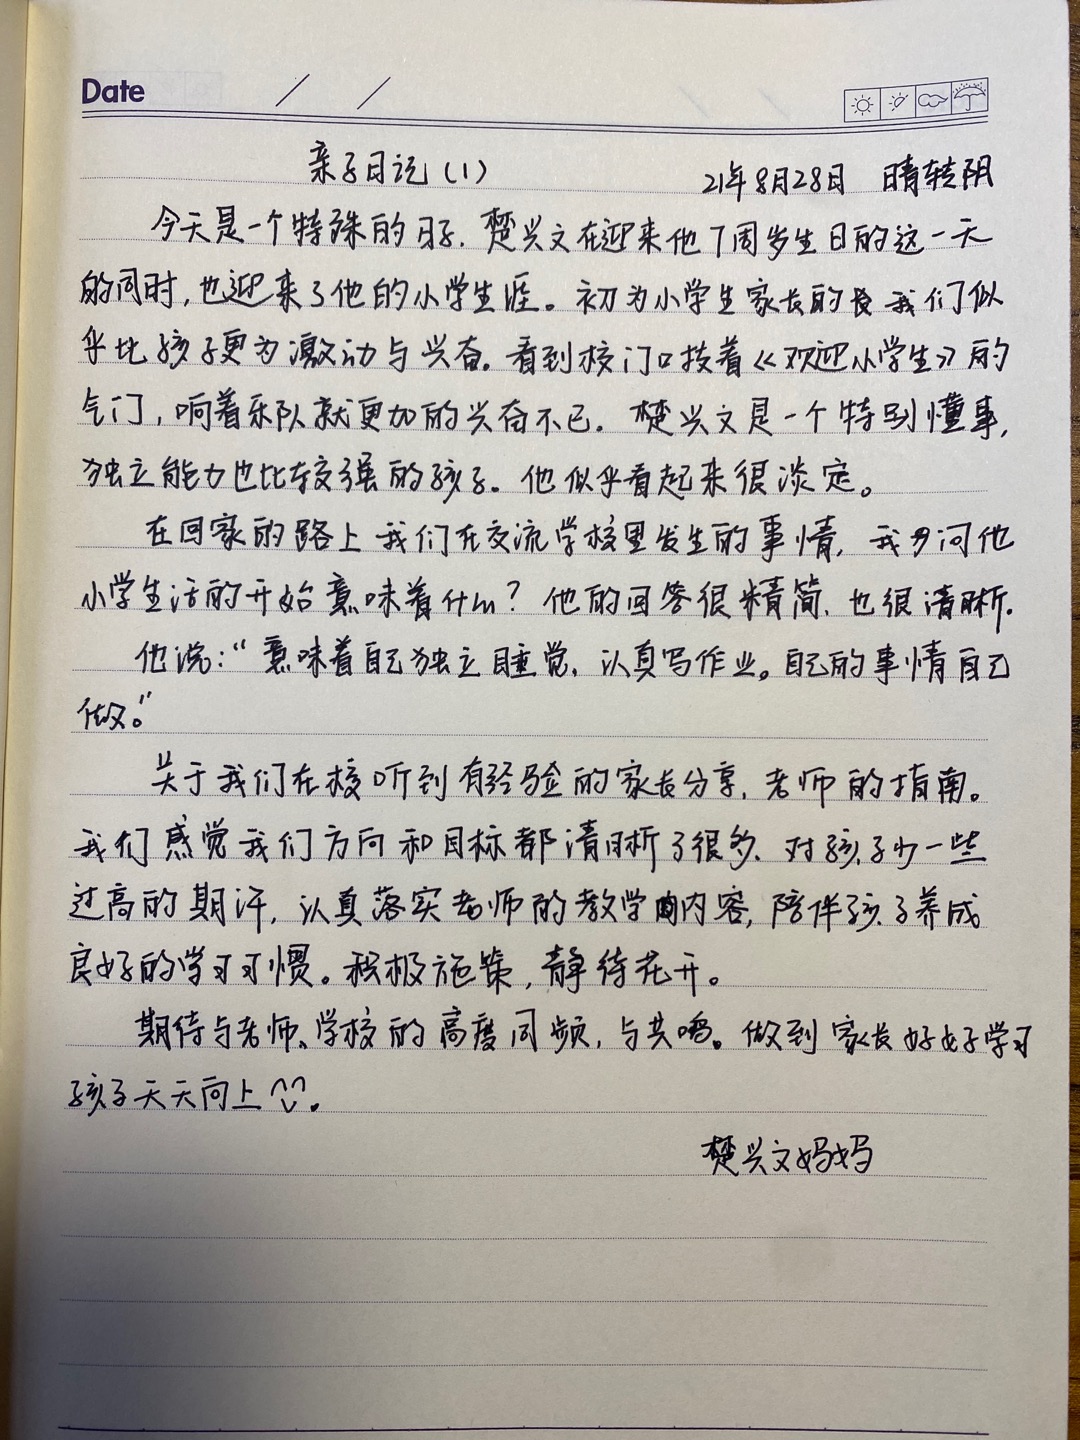 Date
亲子日记(1)
21年8月28日 晴转阴
今天是一个特殊的日子.楚兴文在迎来他7周岁生日的这一天
的同时,也迎来了他的小学生涯。初为小学生家长的 我们似
乎比孩子更为激动与兴奋。看到校门口挂着《欢迎小学生》的
气门,响着乐队就更加的兴奋不已.楚兴文是一个特别懂事,
独立能力也比较强的孩子。他似乎看起来很淡定。
在回家的路上我们在交流学校里发生的事情,我 问他
小学生活的开始意味着什么?他的回答很精简.也很清晰.
他说:“意味着自己独立睡觉,认真写作业。自己的事情自己
做。”
关于我们在校听到有经验的家长分享,老师的指南。
我们感觉我们方向和目标都清晰了很多.对孩子少一些
过高的期许,认真落实老师的教学内容,陪伴孩子养成
良好的学习习惯。积极施策,静待花开。
期待与老师、学校的高度同频,与共鸣。做到家长好好学习
孩子天天向上.
楚兴文妈妈